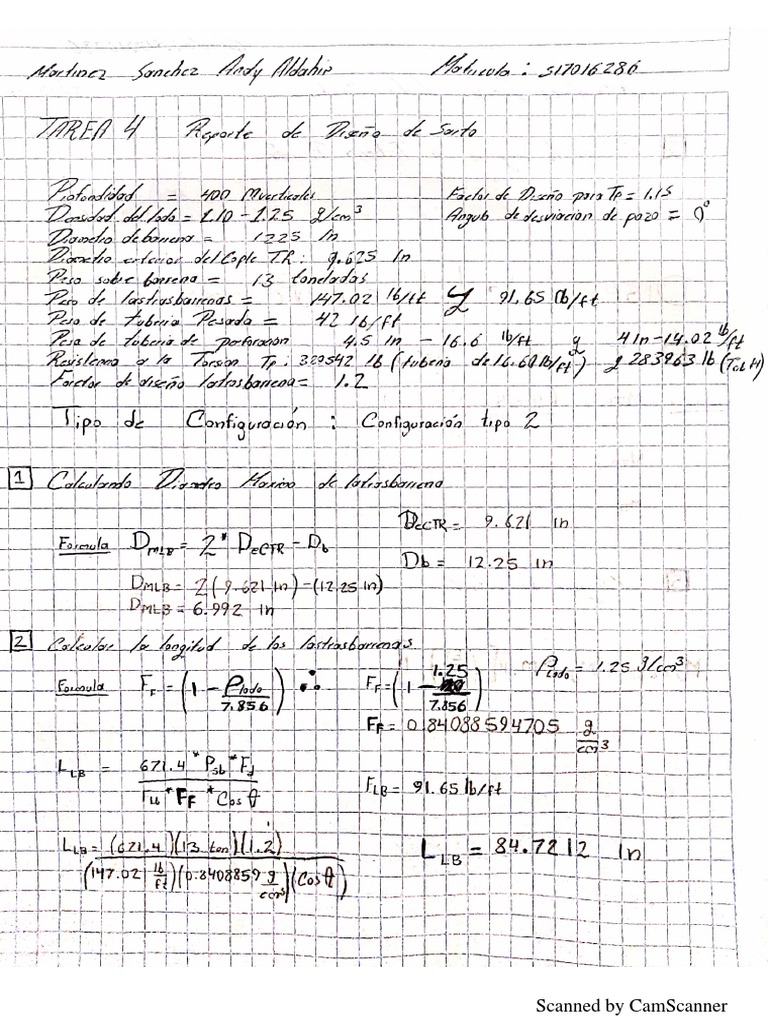 Martinez Sanchez Andy Aldahir Matricula: S17016286
TAREA 4 Reporte de Diseño de Sarta
Profundidad = 400 Mverticales Factor de Diseño para Tp = 1.15
Densidad del lodo = 1.10 - 1.25 g/cm³ Angulo de desviacion de pozo = 0°
Diametro de barrena = 1225 In
Diametro exterior del Cople TR: 9.625 In
Peso sobre barrena = 13 toneladas
Peso de lastrabarrenas = 147.02 lb/ft y 91.65 lb/ft
Peso de tuberia Pesada = 42 lb/ft
Peso de tuberia de perforacion 4.5 in - 16.6 lb/ft y 4 In - 14.02 lb/ft
Resistencia a la Torsion Tp: 329542 lb (tuberia de 16.60 lb/ft) y 283963 lb
Factor de diseño lastrabarrena = 1.2
Tipo de Configuración: Configuración tipo 2
1 Calculando Diametro Maximo de lastrabarrena
DECTR = 9.621 in
Formula DMLB = 2 * DECTR - Db
Db = 12.25 in
DMLB = 2(9.621 in) - (12.25 in)
DMLB = 6.992 in
2 Calcular la longitud de los lastrabarrenas
Formula FF = (1 - ρlodo / 7.856) ∴ FF = (1 - 1.25 / 7.856) ρlodo = 1.25 g/cm³
FF = 0.84088594705 g/cm³
LLB = 671.4 * Psb * Fd / Tu * FF * Cos θ FLB = 91.65 lb/ft
LLB = (671.4)(13 ton)(1.2) / (147.02 lb/ft)(0.8408859 g/cm³)(Cos θ) LLB = 84.7212 In
Scanned by CamScanner